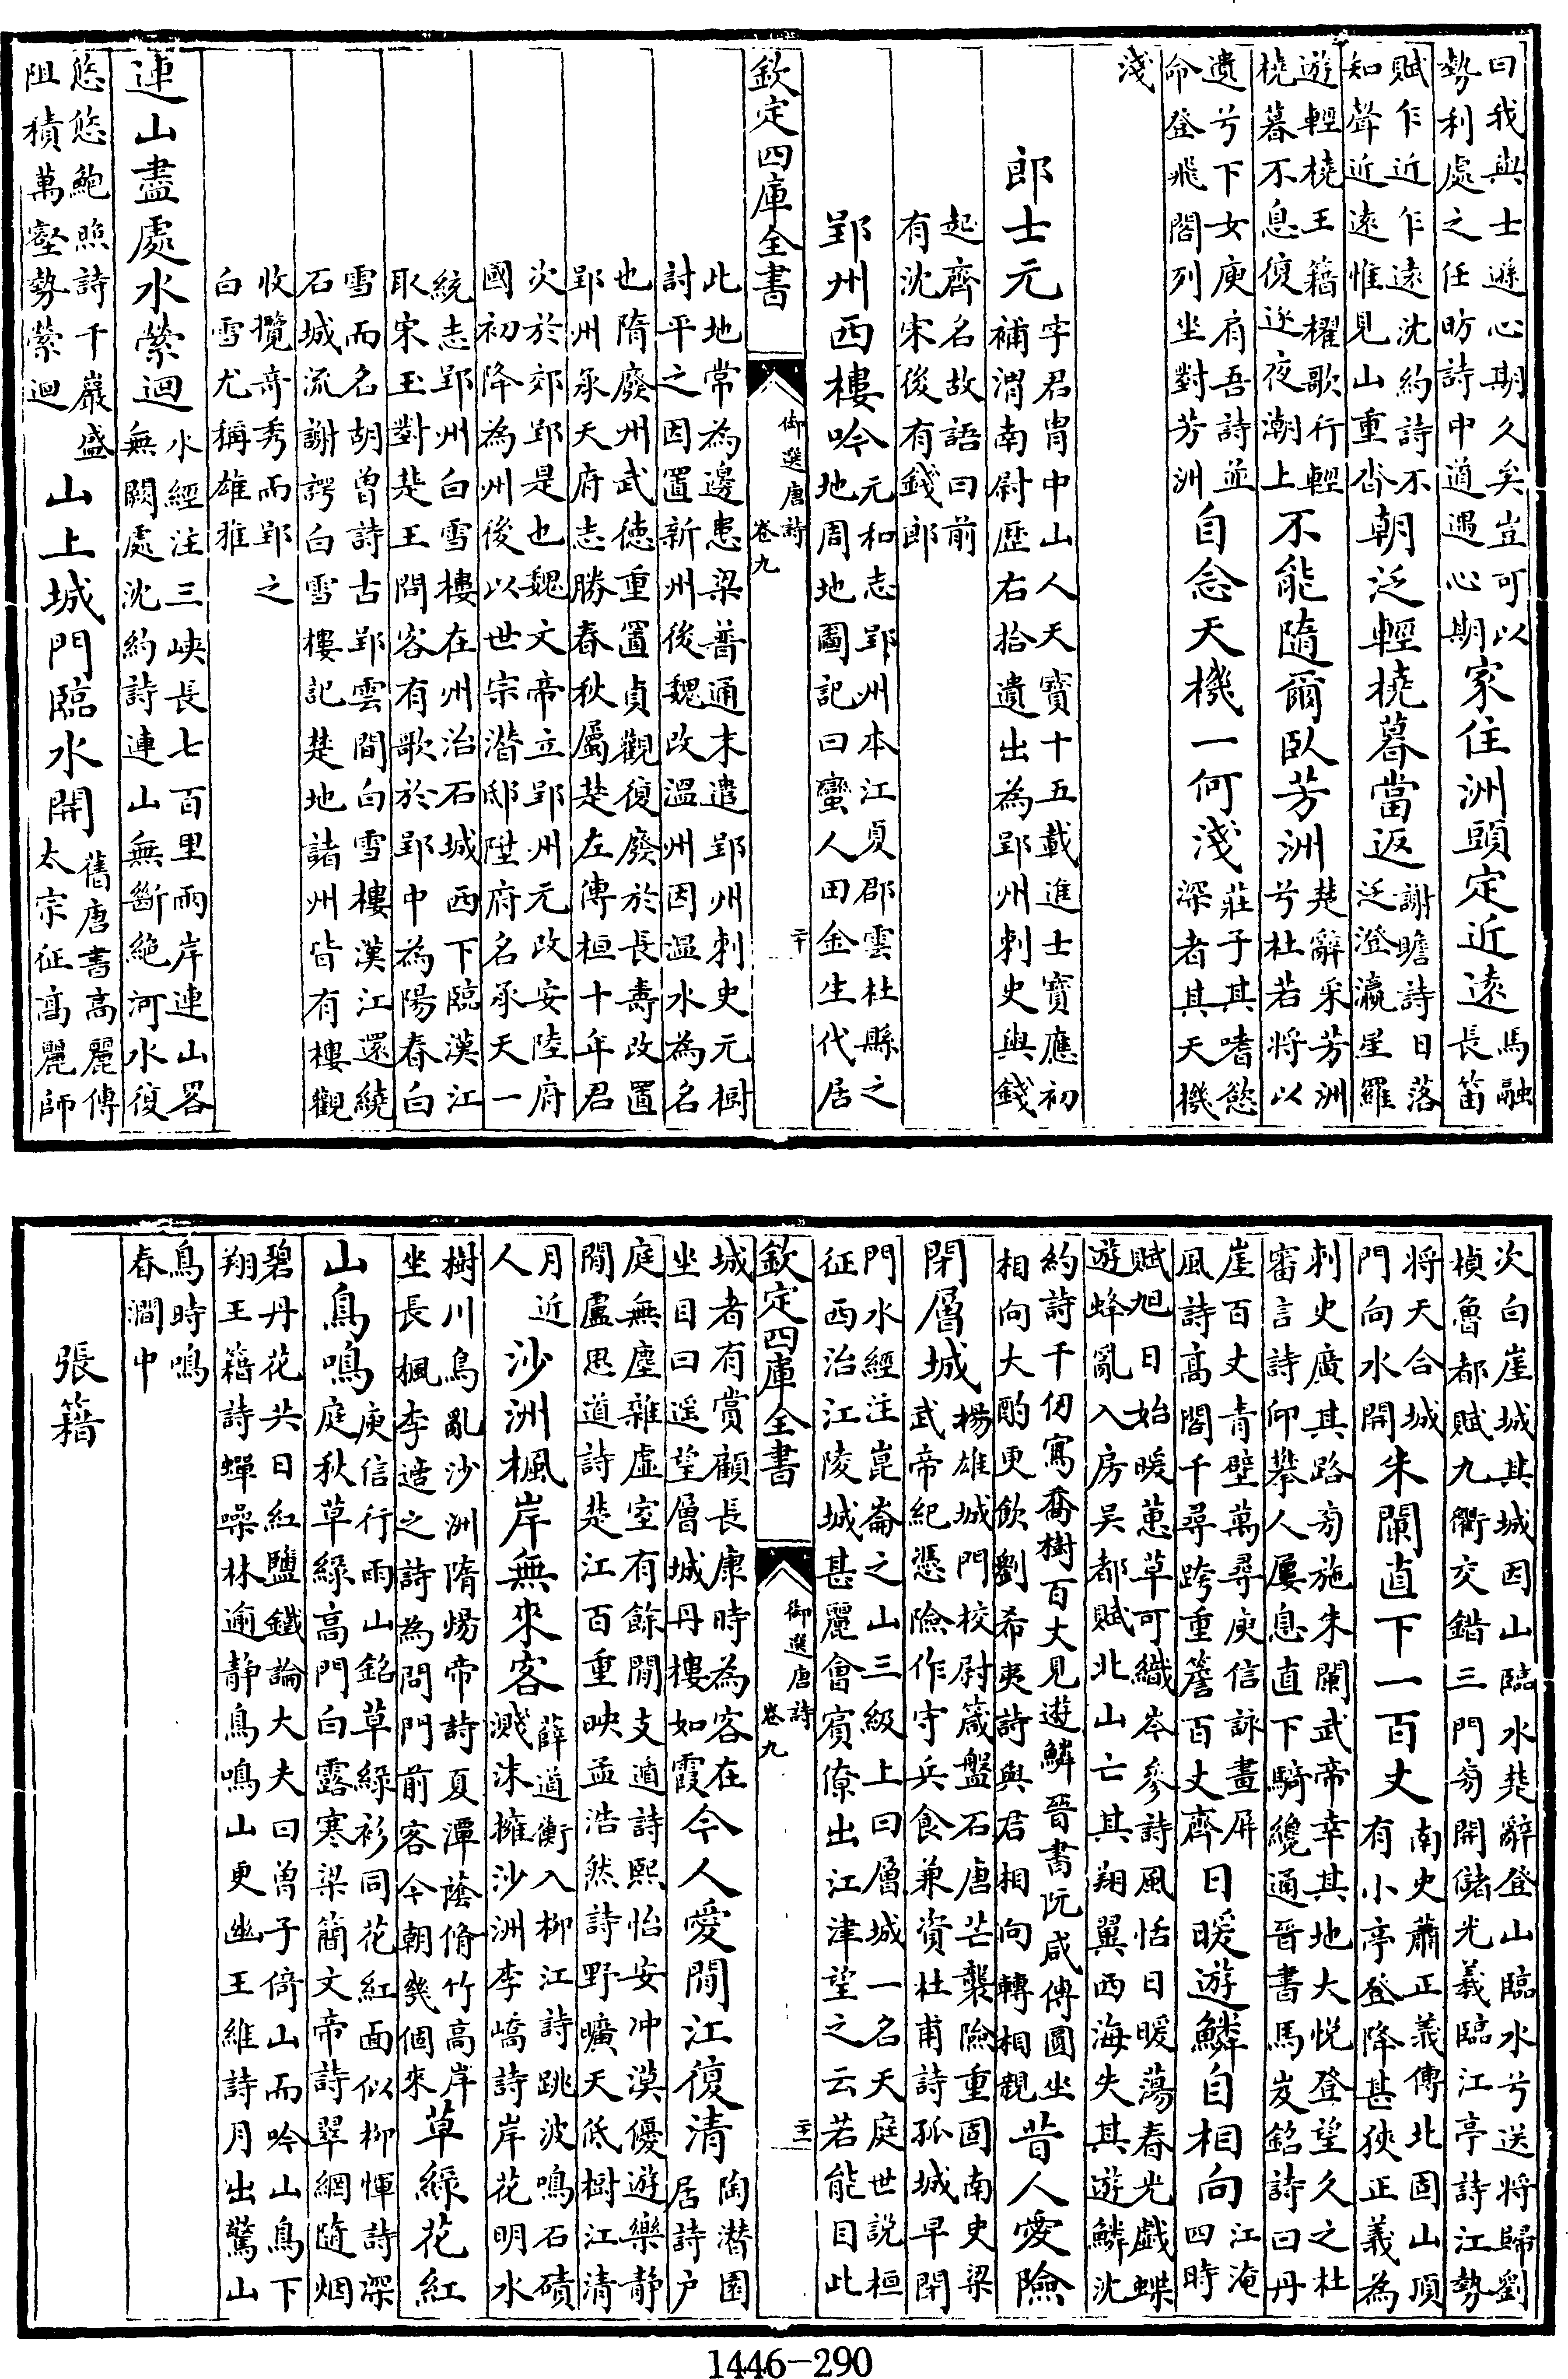 曰我與士遜心期久矣豈可以勢利處之任昉詩中道遇心期家住洲頭定近遠馬融長笛
賦乍近乍遠沈約詩不知聲近遠惟見山重沓朝泛輕橈暮當返謝瞻詩日落泛澄瀛星羅
遊輕橈王籍櫂歌行輕橈暮不息復逐夜潮上不能隨爾臥芳洲楚辭采芳洲兮杜若將以
遺兮下女庾肩吾詩並命登飛閣列坐對芳洲自念天機一何淺莊子其嗜慾深者其天機
淺
郎士元字君胄中山人天寶十五載進士寶應初補渭南尉歷右拾遺出為郢州刺史與錢
起齊名故語曰前有沈宋後有錢郎
郢州西樓吟元和志郢州本江夏郡雲杜縣之地周地圖記曰蠻人田金生代居
欽定四庫全書 御選唐詩 卷九 二十
此地常為邊患梁普通末遣郢州刺史元樹討平之因置新州後魏改溫州因溫水為名
也隋廢州武德重置貞觀復廢於長壽改置郢州承天府志勝春秋屬楚左傳桓十年君
次於郊郢是也魏文帝立郢州元改安陸府國初降為州後以世宗潛邸陞府名承天一
統志郢州白雪樓在州治石城西下臨漢江取宋玉對楚王問客有歌於郢中為陽春白
雪而名胡曾詩古郢雲間白雪樓漢江還繞石城流謝諤白雪樓記楚地諸州皆有樓觀
收攬奇秀而郢之白雪尤稱雄雅
連山盡處水縈迴水經注三峽長七百里兩岸連山畧無闕處沈約詩連山無斷絕河水復
悠悠鮑照詩千巖盛阻積萬壑勢縈迴山上城門臨水開舊唐書高麗傳太宗征高麗師
次白崖城其城因山臨水楚辭登山臨水兮送將歸劉楨魯都賦九衢交錯三門旁開儲光羲臨江亭詩江勢
將天合城門向水開朱闌直下一百丈南史蕭正義傳北固山頂有小亭登降甚狹正義為
刺史廣其路旁施朱闌武帝幸其地大悅登望久之杜審言詩仰攀人屢息直下騎纔通晉書馬岌銘詩曰丹
崖百丈青壁萬尋庾信詠畫屏風詩高閣千尋跨重簷百丈齊日暖遊鱗自相向江淹四時
賦旭日始暖蕙草可織岑參詩風恬日暖蕩春光戲蝶遊蜂亂入房吳都賦北山亡其翔翼西海失其遊鱗沈
約詩千仞寫喬樹百丈見遊鱗晉書阮咸傳圓坐相向大酌更飲劉希夷詩與君相向轉相親昔人愛險
閉層城揚雄城門校尉箴盤石唐芒襲險重固南史梁武帝紀憑險作守兵食兼資杜甫詩孤城早閉
門水經注崑崙之山三級上曰層城一名天庭世說桓征西治江陵城甚麗會賓僚出江津望之云若能目此
欽定四庫全書 御選唐詩 卷九 二十一
城者有賞顧長康時為客在坐目曰遥望層城丹樓如霞今人愛閒江復清陶潛園居詩户
庭無塵雜虛室有餘閒支遁詩熙怡安冲漠優遊樂靜閒盧思道詩楚江百重映孟浩然詩野曠天低樹江清
月近人沙洲楓岸無來客薛道衡入柳江詩跳波鳴石磧濺沫擁沙洲李嶠詩岸花明水
樹川鳥亂沙洲隋煬帝詩夏潭蔭脩竹高岸坐長楓李適之詩為問門前客今朝幾個來草綠花紅
山鳥鳴庾信行雨山銘草綠衫同花紅面似柳惲詩深庭秋草綠高門白露寒梁簡文帝詩翠網隨烟
碧丹花共日紅鹽鐵論大夫曰曾子倚山而吟山鳥下翔王籍詩蟬噪林逾靜鳥鳴山更幽王維詩月出驚山
鳥時鳴春澗中
張籍
1446-290